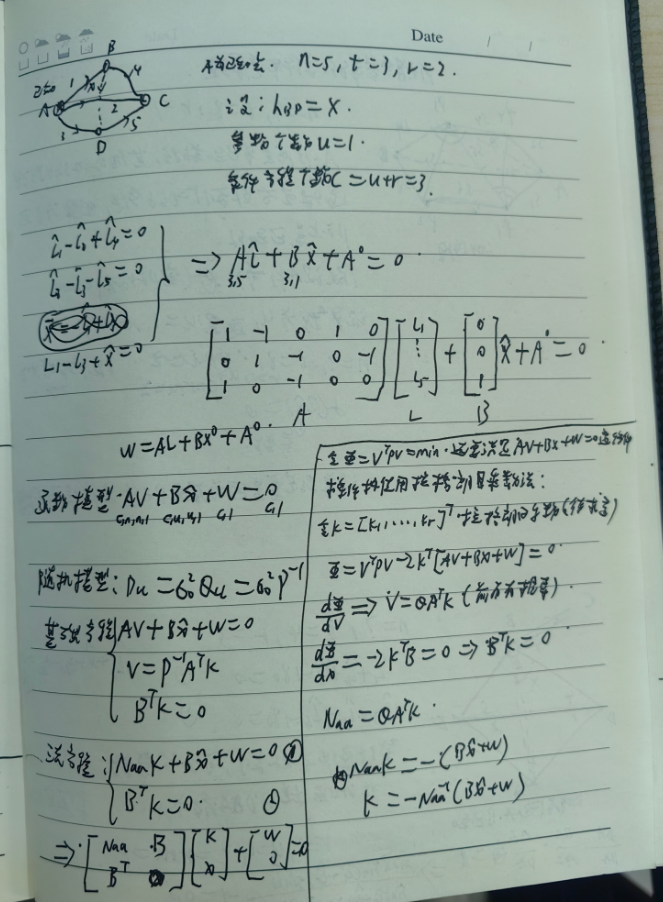 Date
B
已知 1 4
A 2 C
3 5
D
A为已知点. n=5, t=3, r=2.
设: h_BD = X.
参数个数u=1.
条件方程个数C=u+r=3.
L̂₁-L̂₂+L̂₄=0
L̂₂-L̂₃-L̂₅=0
L₁-L₃+X̂=0
=> A L̂ + B X̂ + A⁰ = 0
3,5 3,1
[1 -1 0 1 0
0 1 -1 0 -1
1 0 -1 0 0] [L₁ ⋮ L₅] + [0 0 1] X̂ + A⁰ = 0.
A L B
W=AL+BX⁰+A⁰.
函数模型·AV+Bx̂+W=0
c,n n,1 c,u u,1 c,1 c,1
随机模型: D_LL=σ₀²Q_LL=σ₀²P⁻¹
基础方程{AV+Bx̂+W=0
V=P⁻¹AᵀK
BᵀK=0
法方程:{NaaK+Bx̂+W=0 ①
BᵀK=0. ②
=>·[Naa ·B
Bᵀ 0][K x̂]+[W 0]=0
令Φ=VᵀPV=min·还要满足AV+Bx+W=0这个条件
令K=[K₁,...,Kr]ᵀ·拉格朗日系数(待求量)
Φ=VᵀPV-2Kᵀ[AV+Bx+W]=0.
dΦ/dV => V=QAᵀK
dΦ/dx=-2KᵀB=0 => BᵀK=0
Naa=QAᵀK.
NaaK=-(Bx̂+W)
K=-Naa⁻¹(Bx̂+W)